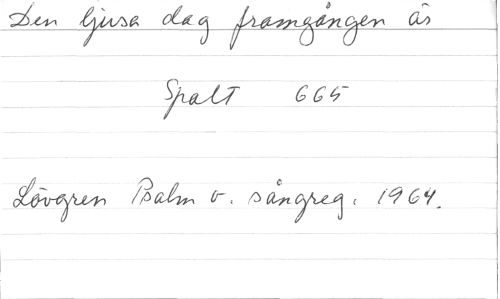 Den ljusa dag framgången är
Spalt 665
Lövgren Psalm o. sångreg. 1964.